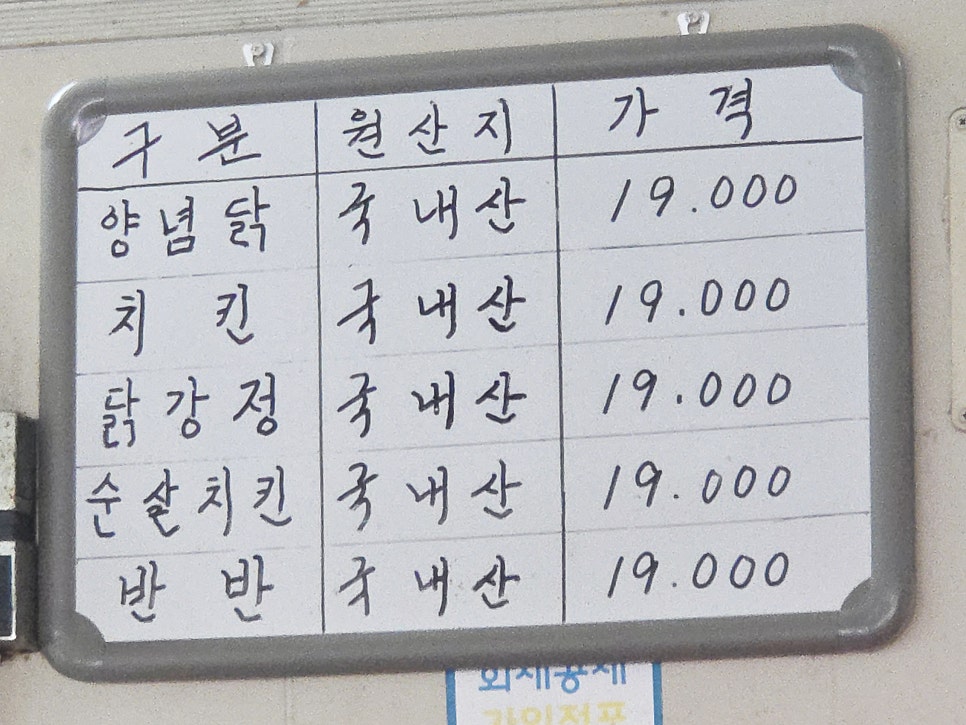 구분 원산지 가격
양념닭 국내산 19.000
치킨 국내산 19.000
닭강정 국내산 19.000
순살치킨 국내산 19.000
반반 국내산 19.000
화재공제
가입점포